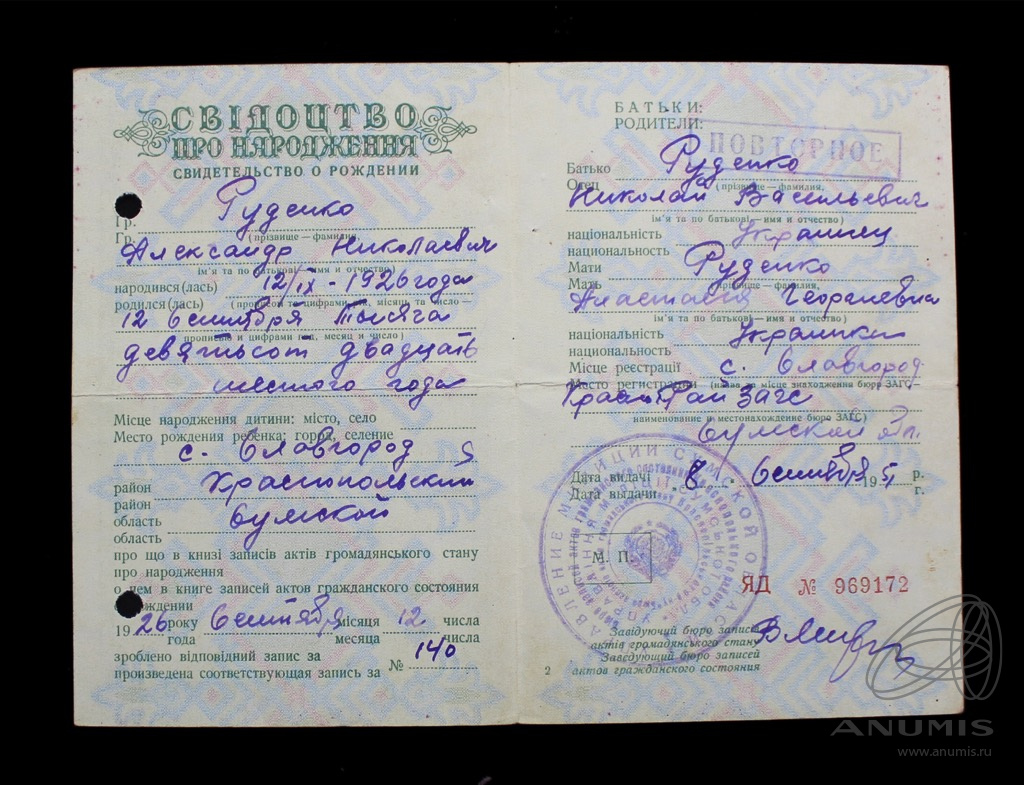 СВІДОЦТВО
ПРО НАРОДЖЕННЯ
СВИДЕТЕЛЬСТВО О РОЖДЕНИИ
Гр. Руденко
Гр. (прізвище — фамилия,
Александр Николаевич
ім'я та по батькові — имя и отчество)
народився(лась) 12/IX - 1926 года
родился(лась) (прописом та цифрами рік, місяць та число —
12 сентября Тысяча
прописью и цифрами год, месяц и число)
девятьсот двадцать
шестого года
Місце народження дитини: місто, село
Место рождения ребенка: город, селение
с. Славгород
район Краснопольский
район
область Сумской
область
про що в книзі записів актів громадянського стану
про народження
о чем в книге записей актов гражданского состояния
о рождении
1926 року сентября місяця 12 числа
года месяца числа
зроблено відповідний запис за № 140
произведена соответствующая запись за
БАТЬКИ:
РОДИТЕЛИ:
ПОВТОРНОЕ
Батько Руденко
Отец (прізвище — фамилия,
Николай Васильевич
ім'я та по батькові — имя и отчество)
національність Украинец
национальность
Мати Руденко
Мать прізвище — фамилия,
Анастасия Георгиевна
ім'я та по батькові — имя и отчество)
національність Украинка
национальность
Місце реєстрації с. Славгород
Место регистрации (назва та місце знаходження бюро ЗАГС —
Край ЗАГС
наименование и местонахождение бюро ЗАГС)
Сумской
Дата видачі 8 сентября 195 р.
Дата выдачи г.
М. П.
ЯД № 969172
Завідуючий бюро записів
актів громадянського стану
Заведующий бюро записей
актов гражданского состояния
2
ANUMIS
www.anumis.ru